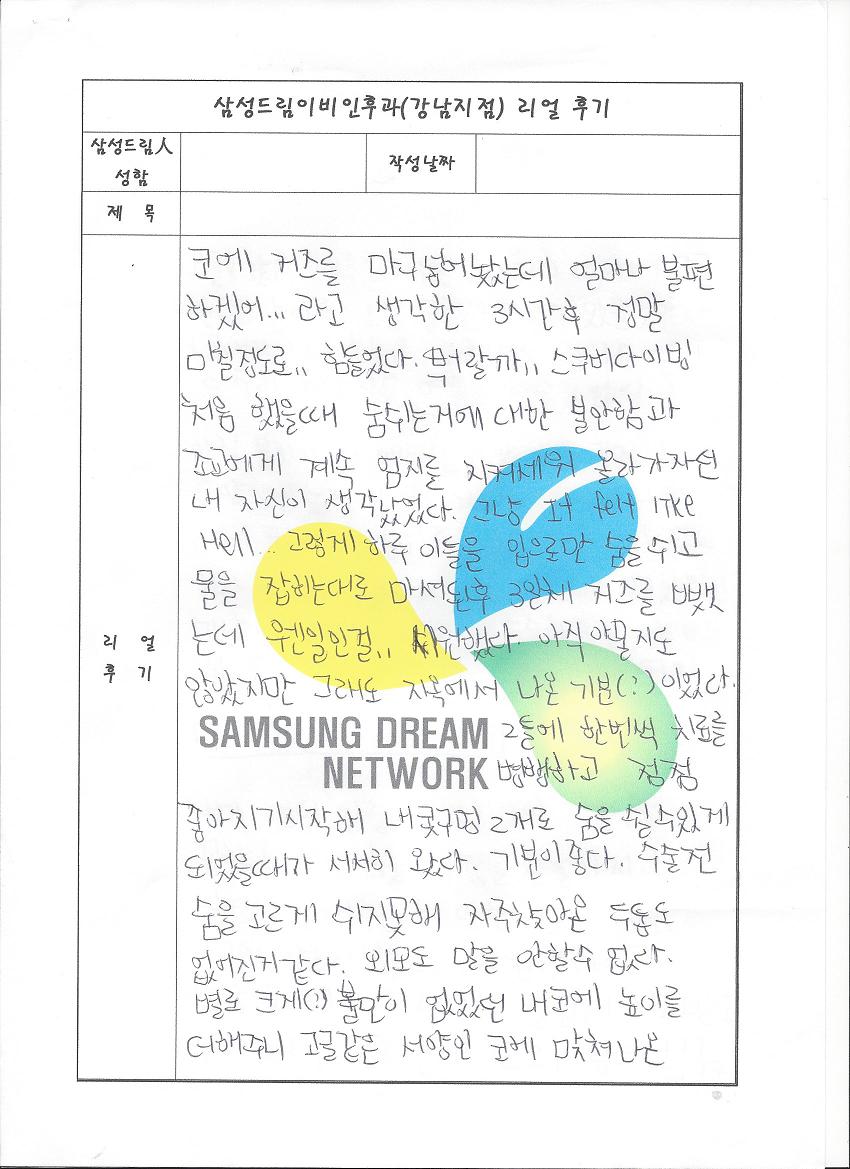 삼성드림이비인후과(강남지점) 리얼 후기
삼성드림人
성함
작성날짜
제 목
리 얼
후 기
코에 커즈를 마구 넣어놨는데 얼마나 불편
하겠어... 라고 생각한 3시간후 정말
미칠정도로,, 힘들었다. 뭐랄까,, 스쿠버다이빙
처음 했을때 숨쉬는거에 대한 불안함과
조교에게 계속 엄지를 치켜세워 올라가자던
내 자신이 생각났었다. 그냥 It felt like
Hell... 그렇게 하루 이틀을 입으로만 숨을 쉬고
물을 잡히는대로 마셔된후 3일째 커즈를 뺐
는데 웬일인걸,, 시원했다. 아직 아물지도
않았지만 그래도 지옥에서 나온 기분(?)이었다.
SAMSUNG DREAM
NETWORK
2틀에 한번씩 치료를
병행하고 점점
좋아지기시작해 내콧구멍 2개로 숨을 쉴수있게
되었을때가 서서히 왔다. 기분이 좋다. 수술전
숨을 고르게 쉬지못해 자주찾아온 두통도
없어진거같다. 외모도 말을 안할수 없다.
별로 크게(?) 불만이 없었던 내코에 높이를
더해주니 고글같은 서양인 코에 맞춰나온